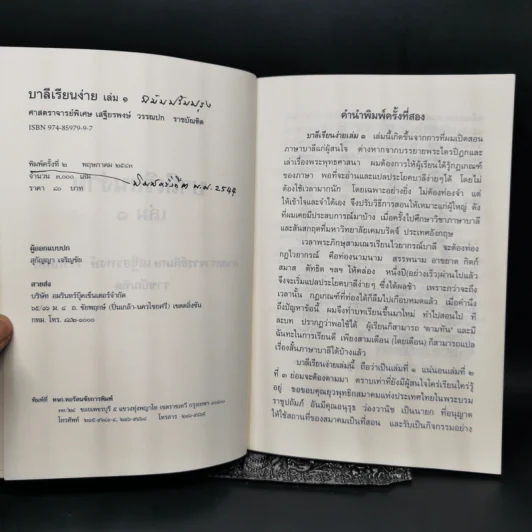 บาลีเรียนง่าย เล่ม ๑ ฉบับปรับปรุง
ศาสตราจารย์พิเศษ เสฐียรพงษ์ วรรณปก ราชบัณฑิต
ISBN 974-85979-9-7
พิมพ์ครั้งที่ ๒ พฤษภาคม
จำนวน ๓,๐๐๐ เล่ม
ราคา ๘๐ บาท
พิมพ์ครั้งที่ ๓ พ.ศ. ๒๕๔๕
ผู้ออกแบบปก
สุกัญญา เจริญชัย
สายส่ง
บริษัท อมรินทร์บุ๊คเซ็นเตอร์จำกัด
๖๕/๑๖ ม. ๔ ถ. ชัยพฤกษ์ (ปิ่นเกล้า-นครไชยศรี) เขตตลิ่งชัน
กทม. โทร. ๘๘๒-๑๐๐๐
พิมพ์ที่ หจก.หอรัตนชัยการพิมพ์
ซอยเพชรบุรี ๕ แขวงทุ่งพญาไท เขตราชเทวี กรุงเทพฯ ๑๐๔๐๐
โทรศัพท์ โทรสาร
คำนำพิมพ์ครั้งที่สอง
บาลีเรียนง่ายเล่ม ๑ เล่มนี้เกิดขึ้นจากการที่ผมเปิดสอน
ภาษาบาลีแก่ผู้สนใจ ต่างหากจากบรรยายพระไตรปิฎกและ
เล่าเรื่องพระพุทธศาสนา ผมต้องการให้ผู้เรียนได้รู้กฎเกณฑ์
ของภาษา พอที่จะอ่านและแปลประโยคบาลีง่ายๆ ได้ โดยไม่
ต้องใช้เวลามากนัก โดยเฉพาะอย่างยิ่ง ไม่ต้องท่องจำ แต่
ให้เข้าใจและจำได้เอง จึงปรับวิธีการสอนให้เหมาะแก่ผู้ใหญ่ ดัง
ที่ผมเคยมีประสบการณ์มาบ้าง เมื่อครั้งไปศึกษาวิชาภาษาบาลี
และสันสกฤตที่มหาวิทยาลัยเคมบริดจ์ ประเทศอังกฤษ
เวลาพระภิกษุสามเณรเรียนไวยากรณ์บาลี จะต้องท่อง
กฎไวยากรณ์ คือท่องนามนาม สรรพนาม อาขยาต กิตก์
สมาส ตัทธิต ฯลฯ ให้คล่อง หนึ่งปี(อย่างเร็ว)ผ่านไปแล้ว
จึงจะเริ่มแปลประโยคบาลีง่ายๆ ซึ่งได้ผลช้า เพราะกว่าจะถึง
เวลานั้น กฎเกณฑ์ที่ท่องได้ก็ลืมไปเกือบหมดแล้ว เมื่อคำนึง
ถึงปัญหาข้อนี้ ผมจึงทำบทเรียนขึ้นมาใหม่ ทำไปสอนไป ที
ละบท ปรากฏว่าพอใช้ได้ ผู้เรียนก็สามารถ "ตามทัน" และมี
ฉันทะในการเรียนดี เพียงสามเดือน (โดยเดือน) ก็สามารถแปล
เรื่องสั้นภาษาบาลีได้บ้างแล้ว
บาลีเรียนง่ายเล่มนี้ ถือว่าเป็นเล่มที่ ๑ แน่นอนเล่มที่ ๒
ที่ ๓ ย่อมจะต้องตามมา ตราบเท่าที่ยังมีผู้สนใจใคร่เรียนใคร่รู้
อยู่ ขอขอบคุณยุวพุทธิกสมาคมแห่งประเทศไทยในพระบรม
ราชูปถัมภ์ อันมีคุณอนุรุธ ว่องวานิช เป็นนายก ที่อนุญาต
ให้ใช้สถานที่ของสมาคมเป็นที่สอน และรับเป็นกิจกรรมอย่าง